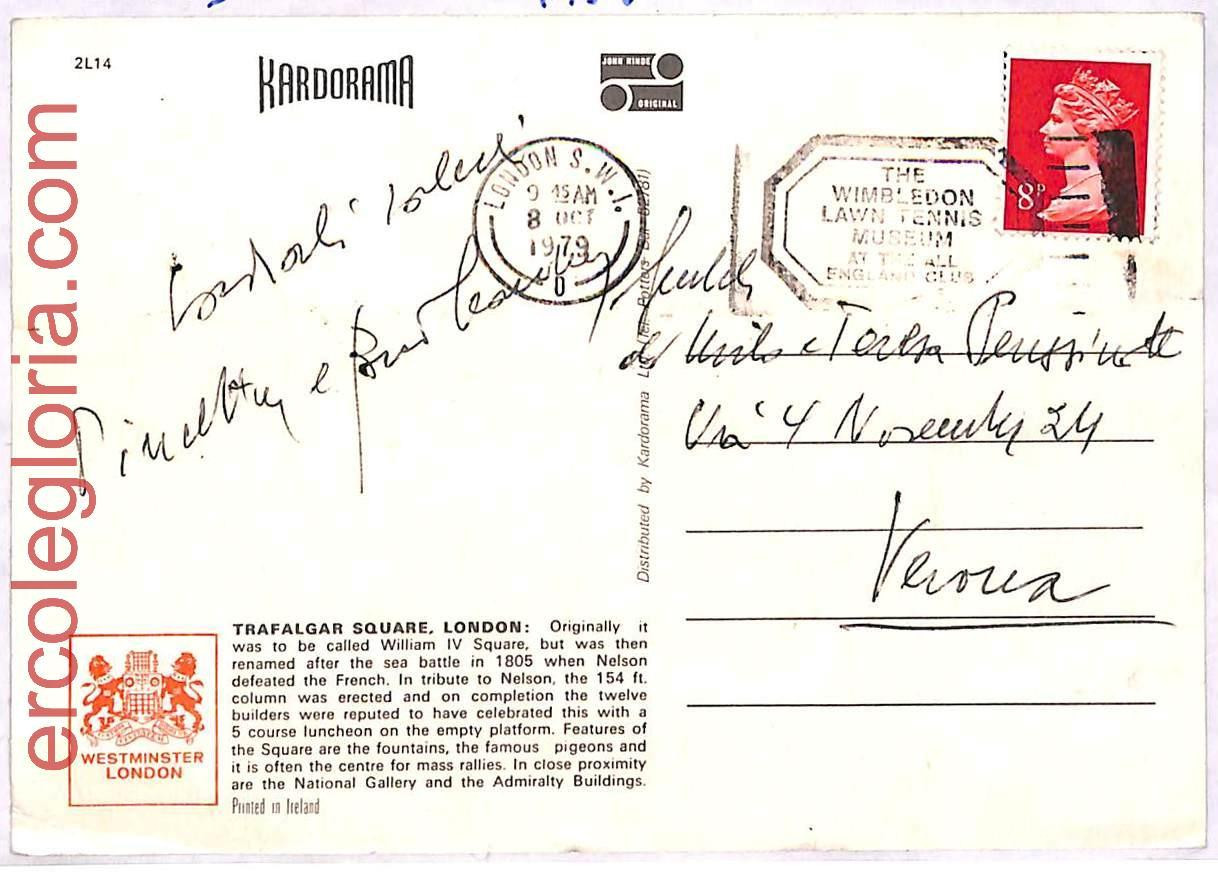 2L14
KARDORAMA
JOHN HINDE
ORIGINAL
LONDON S.W.1.
9 45 AM
8 OCT
1979
D
THE
WIMBLEDON
LAWN TENNIS
MUSEUM
AT THE ALL
ENGLAND CLUB
8P
Cordiali saluti
e
e Teresa
Via 4 Novembre 24
Verona
Distributed by Kardorama Potters Bar
TRAFALGAR SQUARE, LONDON: Originally it
was to be called William IV Square, but was then
renamed after the sea battle in 1805 when Nelson
defeated the French. In tribute to Nelson, the 154 ft.
column was erected and on completion the twelve
builders were reputed to have celebrated this with a
5 course luncheon on the empty platform. Features of
the Square are the fountains, the famous pigeons and
it is often the centre for mass rallies. In close proximity
are the National Gallery and the Admiralty Buildings.
Printed in Ireland
WESTMINSTER
LONDON
ercolegloria.com